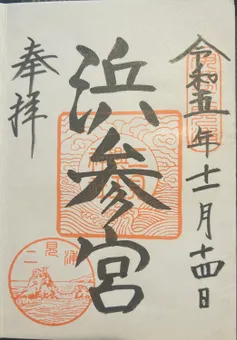 令和五年十一月十四日
浜参宮
奉拝
二見浦